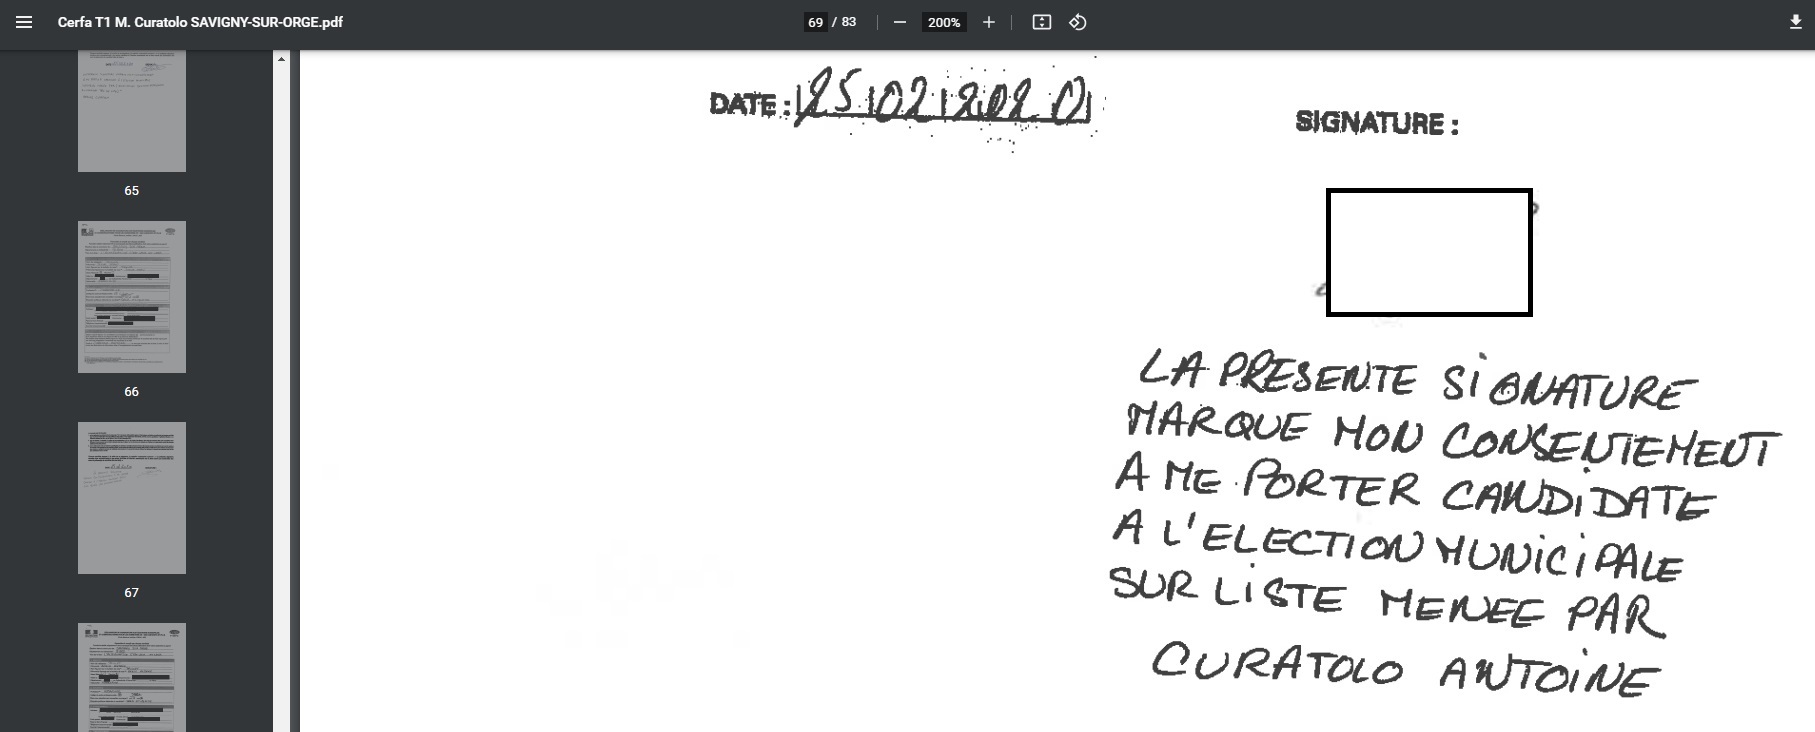 Cerfa T1 M. Curatolo SAVIGNY-SUR-ORGE.pdf
69 / 83
200%
65
66
67
DATE : 25 02 2020
SIGNATURE :
LA PRESENTE SIGNATURE
MARQUE MON CONSENTEMENT
A ME PORTER CANDIDATE
A L'ELECTION MUNICIPALE
SUR LISTE MENEE PAR
CURATOLO ANTOINE